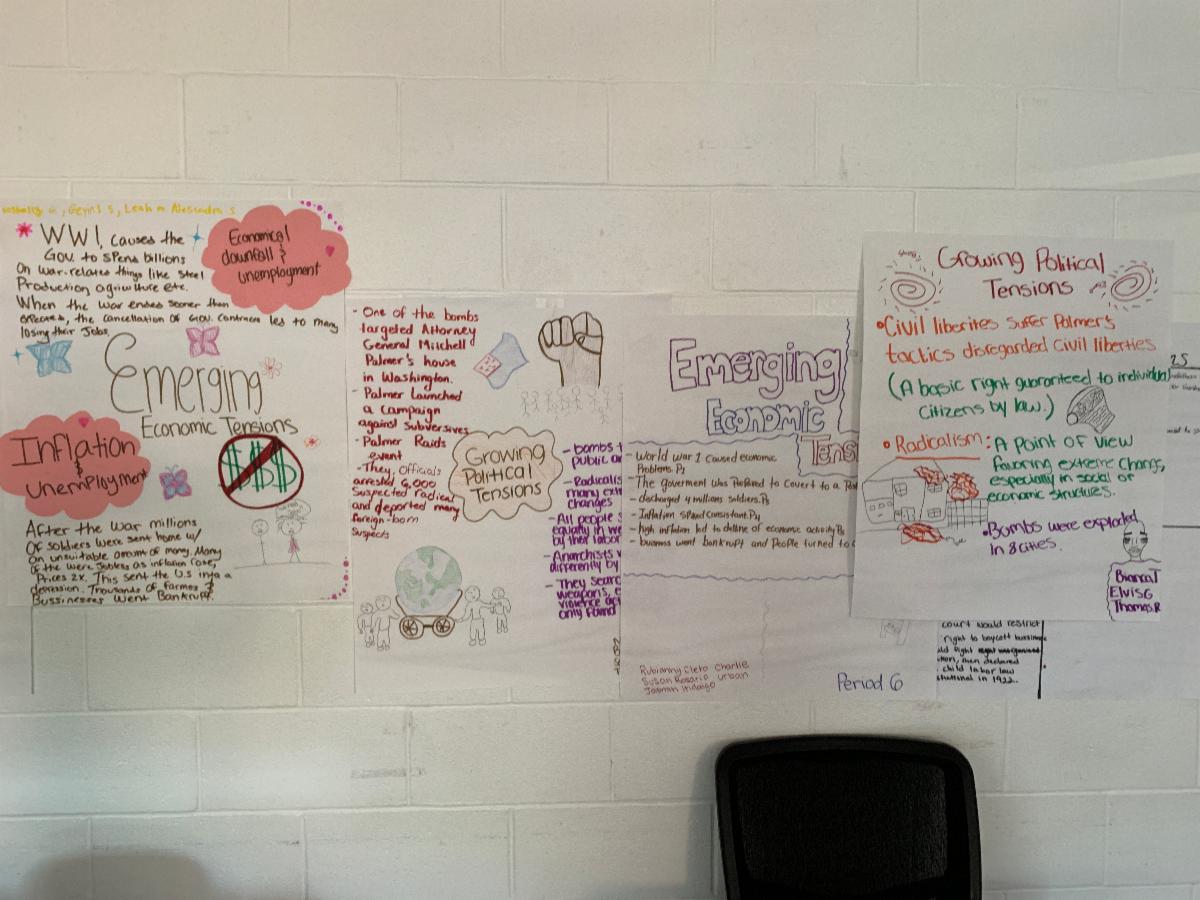 Geyni S, Leah m Alesandra S
WW1, Caused the
Gov. to spend billions
On war-relates things like Steel
Production agriculture etc.
When the war ended sooner than
expected, the cancellation of Gov. Contracts led to many
losing their Jobs.
Economical
downfall &
unemployment
Emerging
Economic Tensions
Inflation
&
unemployment
$$$
After the war millions
Of soldiers were sent home w/
an unsuitable amount of money. Many
of the were Jobless as inflation rose,
Prices 2x. This sent the U.S into a
depression. Thousands of farmes &
Bussinesses Went Bankrupt.
- One of the bombs
targeted Attorney
General Mitchell
Palmer's house
in Washington.
- Palmer launched
a campaign
against subversives
- Palmer Raids
event
- They, officials
arrested 6,000
Suspected radical
and deported many
foreign-born
suspects
Growing
Political
Tensions
- bombs
public
- Radicalis
many ext
changes
- All people
equally in
by their labor
- Anarchists
differently by
- They searc
weapons, e
violence act
only found
Emerging
Economic
Tens
- World War 1 caused economic
Problems. P2
- The goverment was Prefored to Covert to a
- discharged 4 millions soldiers. P3
- Inflation consistant. P4
- high inflation led to decline of economic activity P5
- business went bankrupt and People turned to
Rubianny Cleto Charlie
Susan Rosario urban
Jasmin Hidalgo
Period 6
Growing Political
Tensions
• Civil liberites Suffer Palmer's
tactics disregarded Civil liberties
(A basic right guaranteed to individual
Citizens by law.)
• Radicalism: A Point of View
favoring extreme change,
especially in social or
economic structures.
• Bombs were exploded
in 8 cities.
Bianca T
Elvis G
Thomas R
25
court would restrict
right to boycott
child labor law
in 1922.